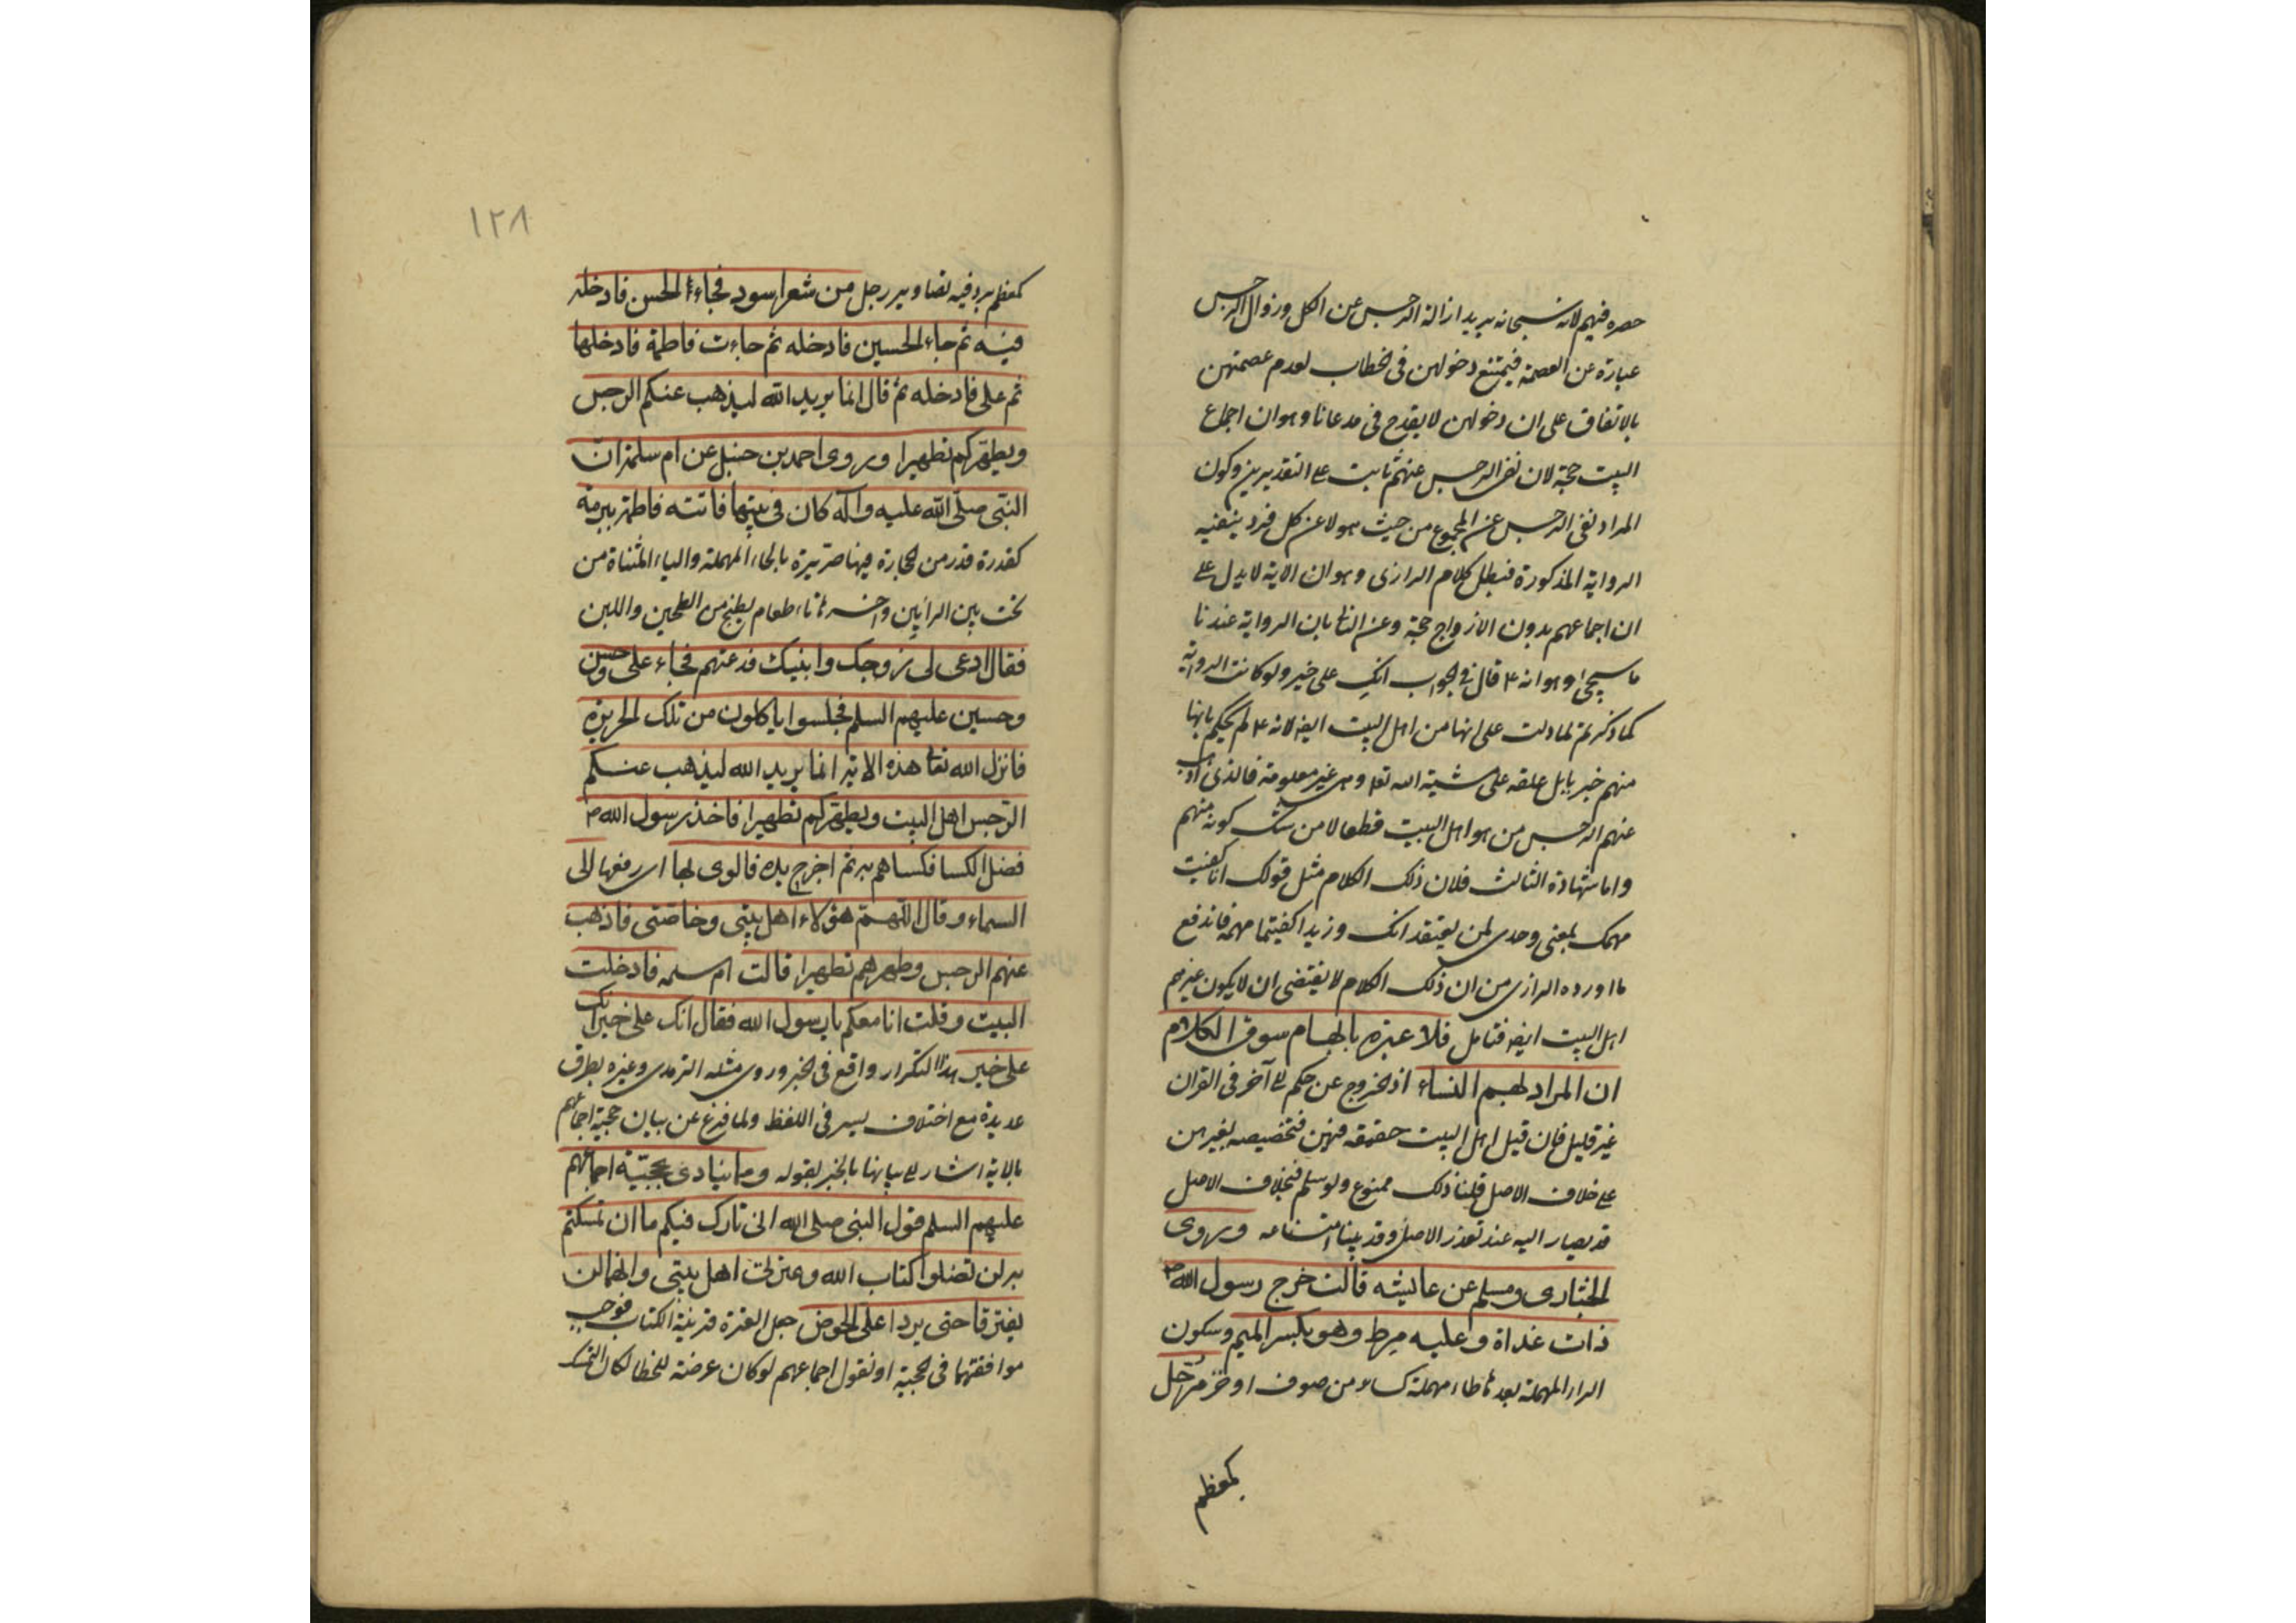 حصره فيهم لانه سبحانه يريد ازالة الرجس عن الكل وزوال الرجس
عبارة عن العصمة فيمتنع دخولهن فى الخطاب لعدم عصمتهن
بالاتفاق على ان دخولهن لا يقدح فى مدعانا وهو ان اجماع
البيت حجة لان نفى الرجس عنهم ثابت على التقديرين وكون
المراد نفى الرجس عن المجموع من حيث هو لا عن كل فرد ينفيه
الرواية المذكورة فبطل كلام الرازى وهو ان الاية لا يدل على
ان اجماعهم بدون الازواج حجة وعن الثانى بان الرواية عندنا
ما سيجئ وهو انه ع قال فى الجواب انك على خير ولو كانت الرواية
كما ذكرتم لما دلت على انها من اهل البيت ايضا لانه ع لم يحكم بانها
منهم خبر بابل علقه على مشية الله تعالى وهى غير معلومة فالذى اذهب
عنهم الرجس من هو اهل البيت قطعا لا من شك كونه منهم
واما شهادة الثالث فلان ذلك الكلام مثل قولك انا كفيت
مهمك بمعنى وحدى لمن يعتقد انك وزيدا كفيتما مهمه فاندفع
ما اورده الرازى من ان ذلك الكلام لا يقتضى ان لا يكون غيرهم
اهل البيت ايضا فتامل فلا عبرة بابهام سوق الكلام
ان المراد بهم النساء اذ الخروج عن حكم الى آخر فى القران
غير قليل فان قيل اهل البيت حقيقة فيهن فتخصيصه بغيرهن
على خلاف الاصل قلنا ذلك ممنوع ولو سلم فبخلاف الاصل
قد يصار اليه عند تعذر الاصل وقد بينا امتناعه وروى
البخارى ومسلم عن عايشه قالت خرج رسول الله ص
ذات غداة وعليه مرط وهو بكسر الميم وسكون
الراء المهملة بعدها طاء مهملة كساء من صوف او خز مرحل
كمعظم
١٢٨
كمعظم برد فيه تصاوير رجل من شعر اسود فجاءه الحسن فادخله
فيه ثم جاء الحسين فادخله ثم جاءت فاطمة فادخلها
ثم على فادخله ثم قال انما يريد الله ليذهب عنكم الرجس
ويطهركم تطهيرا وروى احمد بن حنبل عن ام سلمة ان
النبى صلى الله عليه وآله كان فى بيتها فاتته فاطمة ببرمة
كقدرة قدر من الحجارة فيها حريرة بالحاء المهملة والياء المثناة من
تحت بين الرائين واخره تاء طعام يطبخ من الطحين واللبن
فقال ادعى لى زوجك وابنيك فدعتهم فجاء على وحسن
وحسين عليهم السلم فجلسوا ياكلون من تلك الحريرة
فانزل الله تعالى هذه الاية انما يريد الله ليذهب عنكم
الرجس اهل البيت ويطهركم تطهيرا فاخذ رسول الله ص
فضل الكسا فكساهم به ثم اخرج يده فالوى بها اى رفعها الى
السماء وقال اللهم هؤلاء اهل بيتى وخاصتى فاذهب
عنهم الرجس وطهرهم تطهيرا قالت ام سلمه فادخلت
البيت وقلت انا معكم يا رسول الله فقال انك على خير انك
على خير هذا التكرار واقع فى الخبر وروى مثله الترمذى وغيره بطرق
عديدة مع اختلاف يسير فى اللفظ ولما فرغ عن بيان حجية اجماعهم
بالاية اشار الى بيانها بالخبر بقوله ومما ينادى بحجية اجماعهم
عليهم السلم قول النبى صلى الله انى تارك فيكم ما ان تمسكتم
به لن تضلوا كتاب الله وعترتى اهل بيتى وانهما لن
يفترقا حتى يردا على الحوض جعل العترة قرينة الكتاب فوجب
موافقتها فى الحجية او نقول اجماعهم لو كان عرضة للخطا لكان التمسك